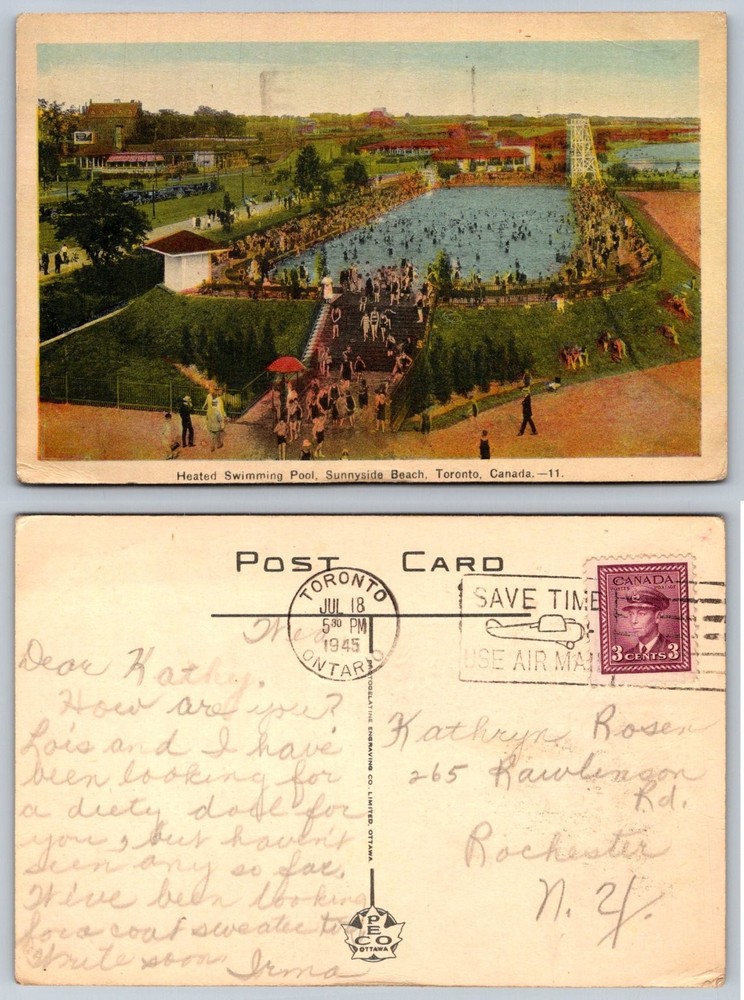 Heated Swimming Pool, Sunnyside Beach, Toronto, Canada.—11.
POST CARD
TORONTO
JUL 18
5 30 PM
1945
ONTARIO
SAVE TIME
USE AIR MAI
CANADA
POSTES POSTAGE
3 CENTS 3
Wed
Dear Kathy,
How are you?
Lois and I have
been looking for
a diety doll for
you, but haven't
seen any so far.
We've been looking
for a coat sweater
Write soon
Irma
PHOTOGELATINE ENGRAVING CO. LIMITED, OTTAWA.
PECO
OTTAWA
Kathryn Rosen
265 Rawlinson
Rd.
Rochester
N. Y.